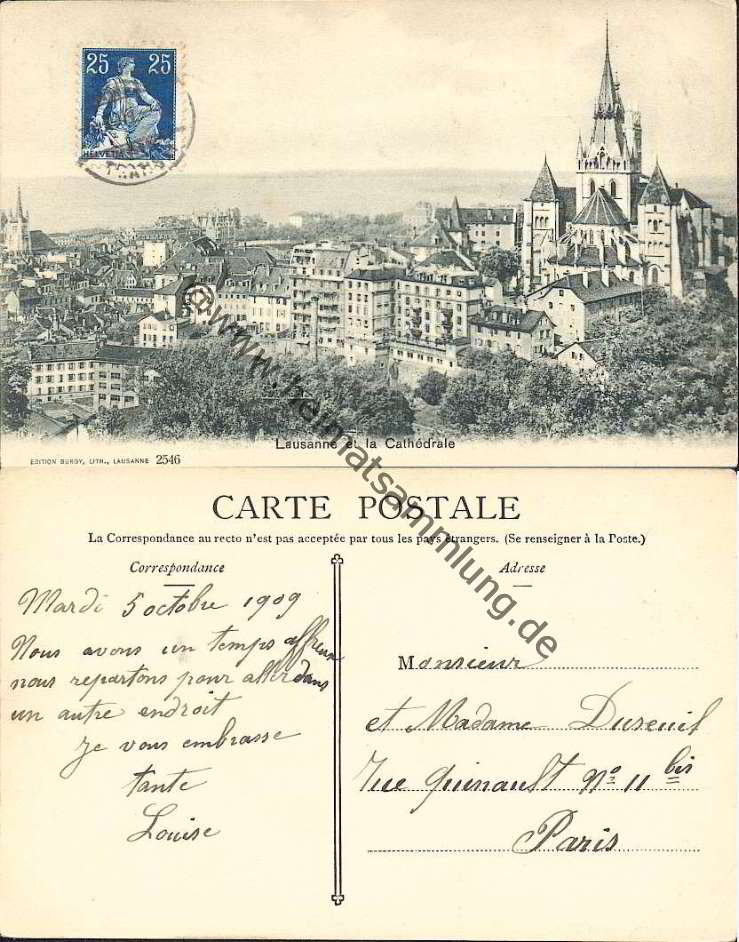 25 25
HELVETIA
Lausanne et la Cathédrale
EDITION BURGY, LITH., LAUSANNE 2546
@www.heimatsammlung.de
CARTE POSTALE
La Correspondance au recto n'est pas acceptée par tous les pays étrangers. (Se renseigner à la Poste.)
Correspondance
Mardi 5 octobre 1909
Nous avons un temps affreux
nous repartons pour aller dans
un autre endroit
Je vous embrasse
tante
Louise
Adresse
Monsieur
et Madame Dureuil
Rue Quinault No 11 bis
Paris